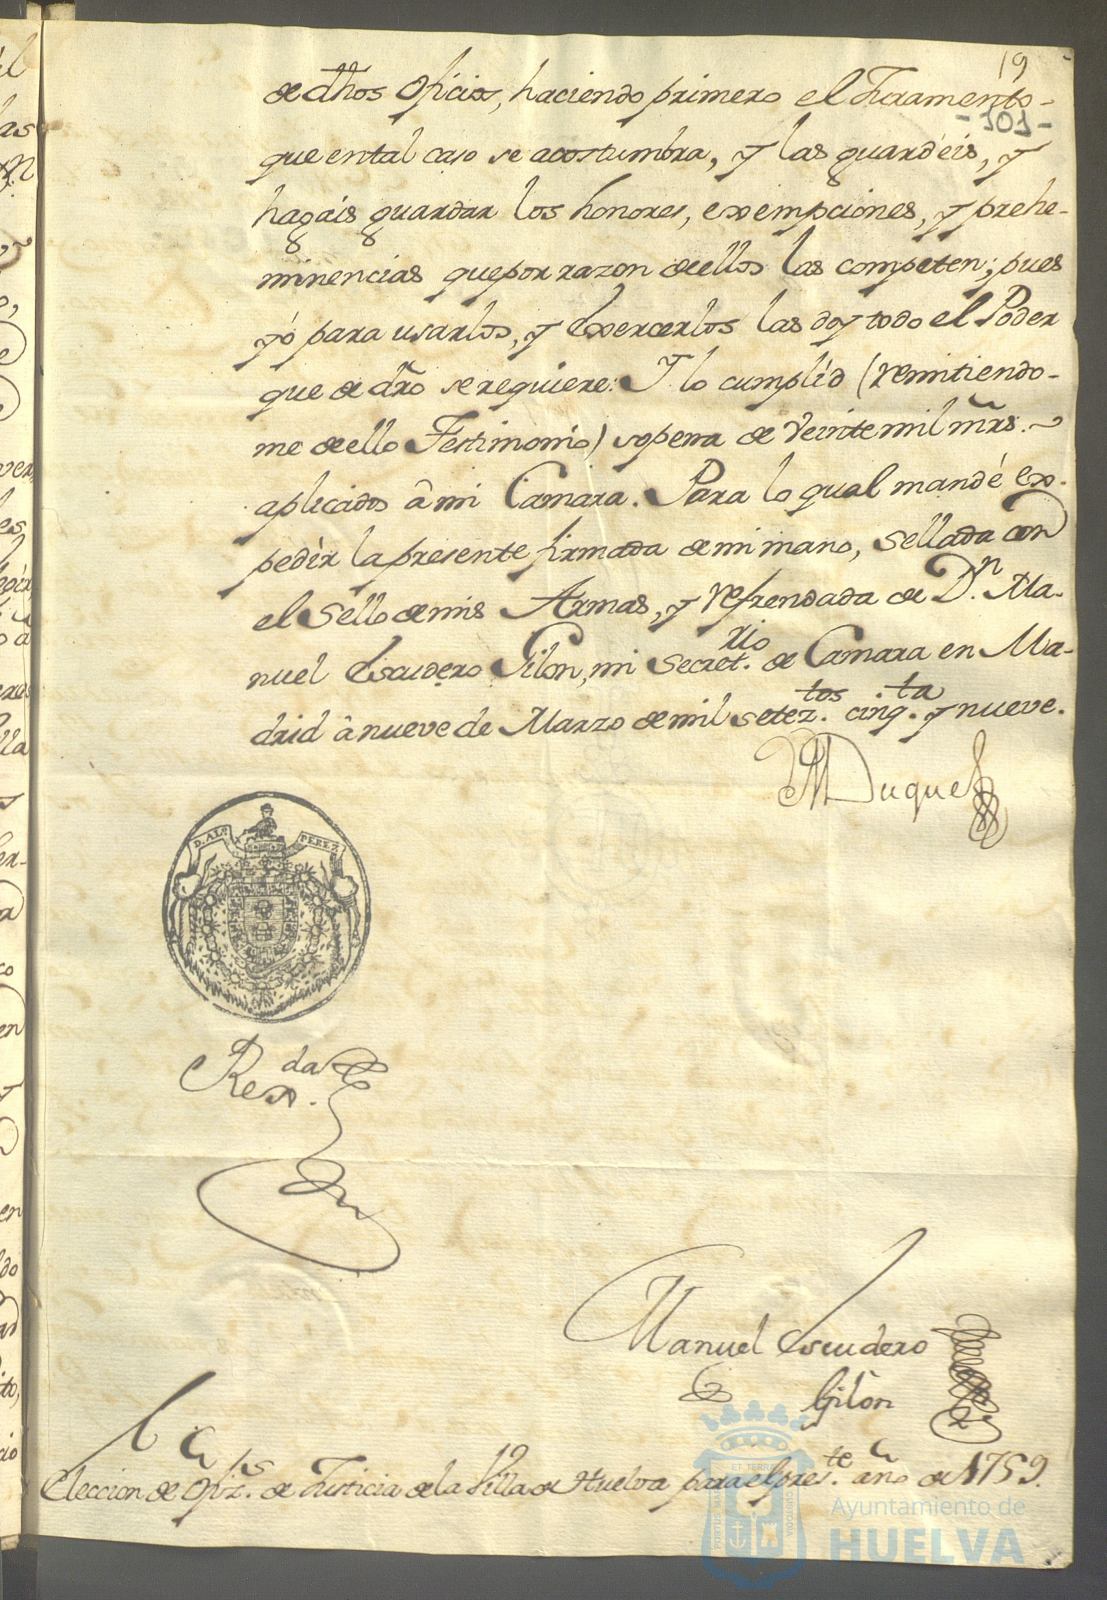 19
de dhos Oficios, haciendo primero el Juramento-
-101-
que en tal caso se acostumbra, y las guardéis, y
hagais guardar los honores, exempciones, y prehe-
minencias que por razon de ellos las competen; pues
yó para usarlos, y Exercerlos las doy todo el Poder
que de dro se requiere: Y lo cumplid (remitiendo-
me de ello Testimonio) so pena de Veinte mil mrs.
aplicados â mi Camara. Para lo qual mandé ex-
pedir la presente firmada de mi mano, sellada con
el Sello de mis Armas, y refrendada de Dn. Ma-
nuel Escudero Gilon, mi Secret.rio de Camara en Ma-
drid â nueve de Marzo de mil setez.tos cinq.ta y nueve.
El Duque
D. ALO. PEREZ
Rex.da
Manuel Escudero
Gilón
Eleccion de Ofiz.s de Justicia de la Villa de Huelva para el pres.te año de 1759.
Ayuntamiento de
HUELVA